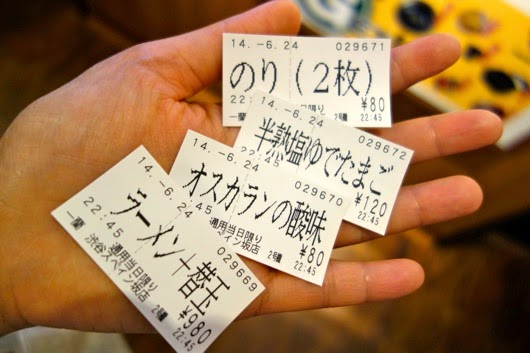 14.-6.24 029671
のり(2枚)
22:45 ¥80
一蘭 適用当日限り 2号機 22:45
14.-6.24 029672
半熟塩ゆでたまご
22:45 ¥120
22:45
14.-6.24 029670
オスカランの酸味
22:45 適用当日限り ¥80
スペイン坂店 2号機 22:45
14.-6.24 029669
ラーメン+替玉
22:45 適用当日限り ¥980
一蘭 渋谷スペイン坂店 2号機 22:45